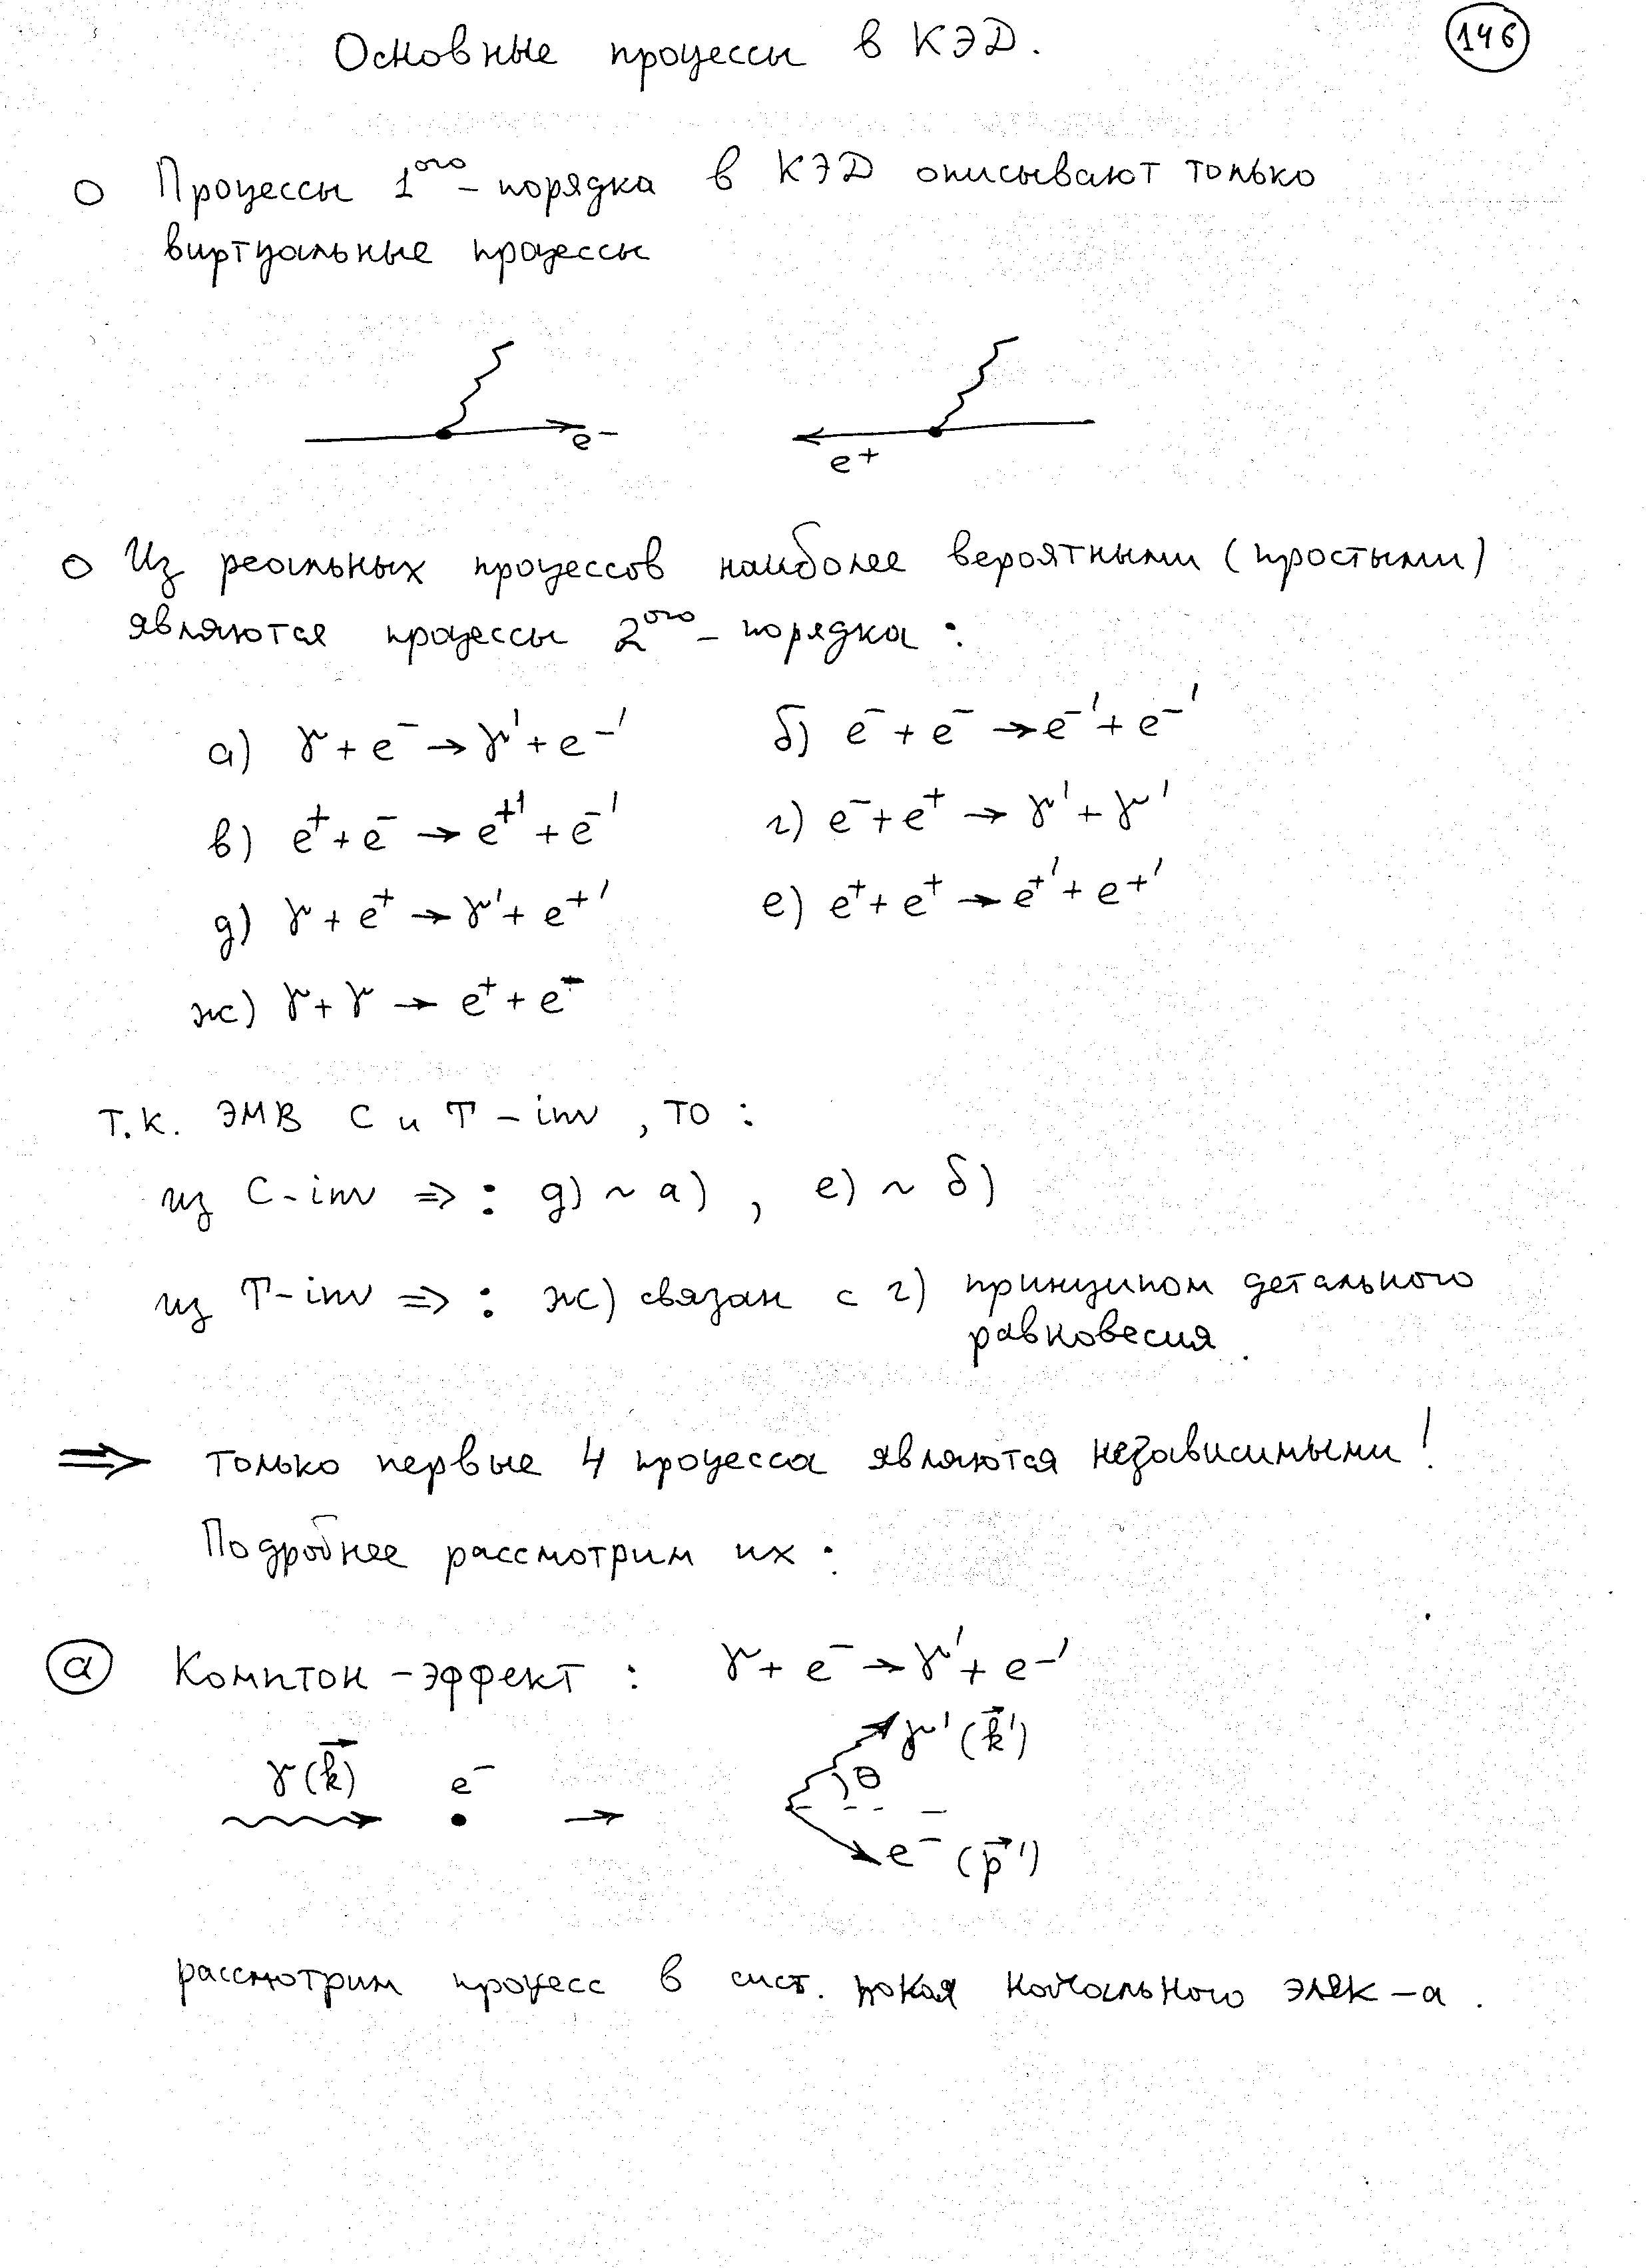 Основные процессы в КЭД.
146
○ Процессы 1ого-порядка в КЭД описывают только
виртуальные процессы
e⁻
e⁺
○ Из реальных процессов наиболее вероятными (простыми)
являются процессы 2ого-порядка:
а) γ + e⁻ → γ' + e⁻' б) e⁻ + e⁻ → e⁻' + e⁻'
в) e⁺ + e⁻ → e⁺' + e⁻' г) e⁻ + e⁺ → γ' + γ'
д) γ + e⁺ → γ' + e⁺' е) e⁺ + e⁺ → e⁺' + e⁺'
ж) γ + γ → e⁺ + e⁻
Т.к. ЭМВ С и Т-inv, то:
из C-inv ⇒: д) ~ а), е) ~ б)
из T-inv ⇒: ж) связан с г) принципом детального
равновесия.
⇒ только первые 4 процесса являются независимыми!
Подробнее рассмотрим их:
(а) Комптон-эффект: γ + e⁻ → γ' + e⁻'
γ(k⃗) e⁻ → γ'(k⃗')
θ
e⁻(p⃗')
рассмотрим процесс в сист. покоя начального элек-а.